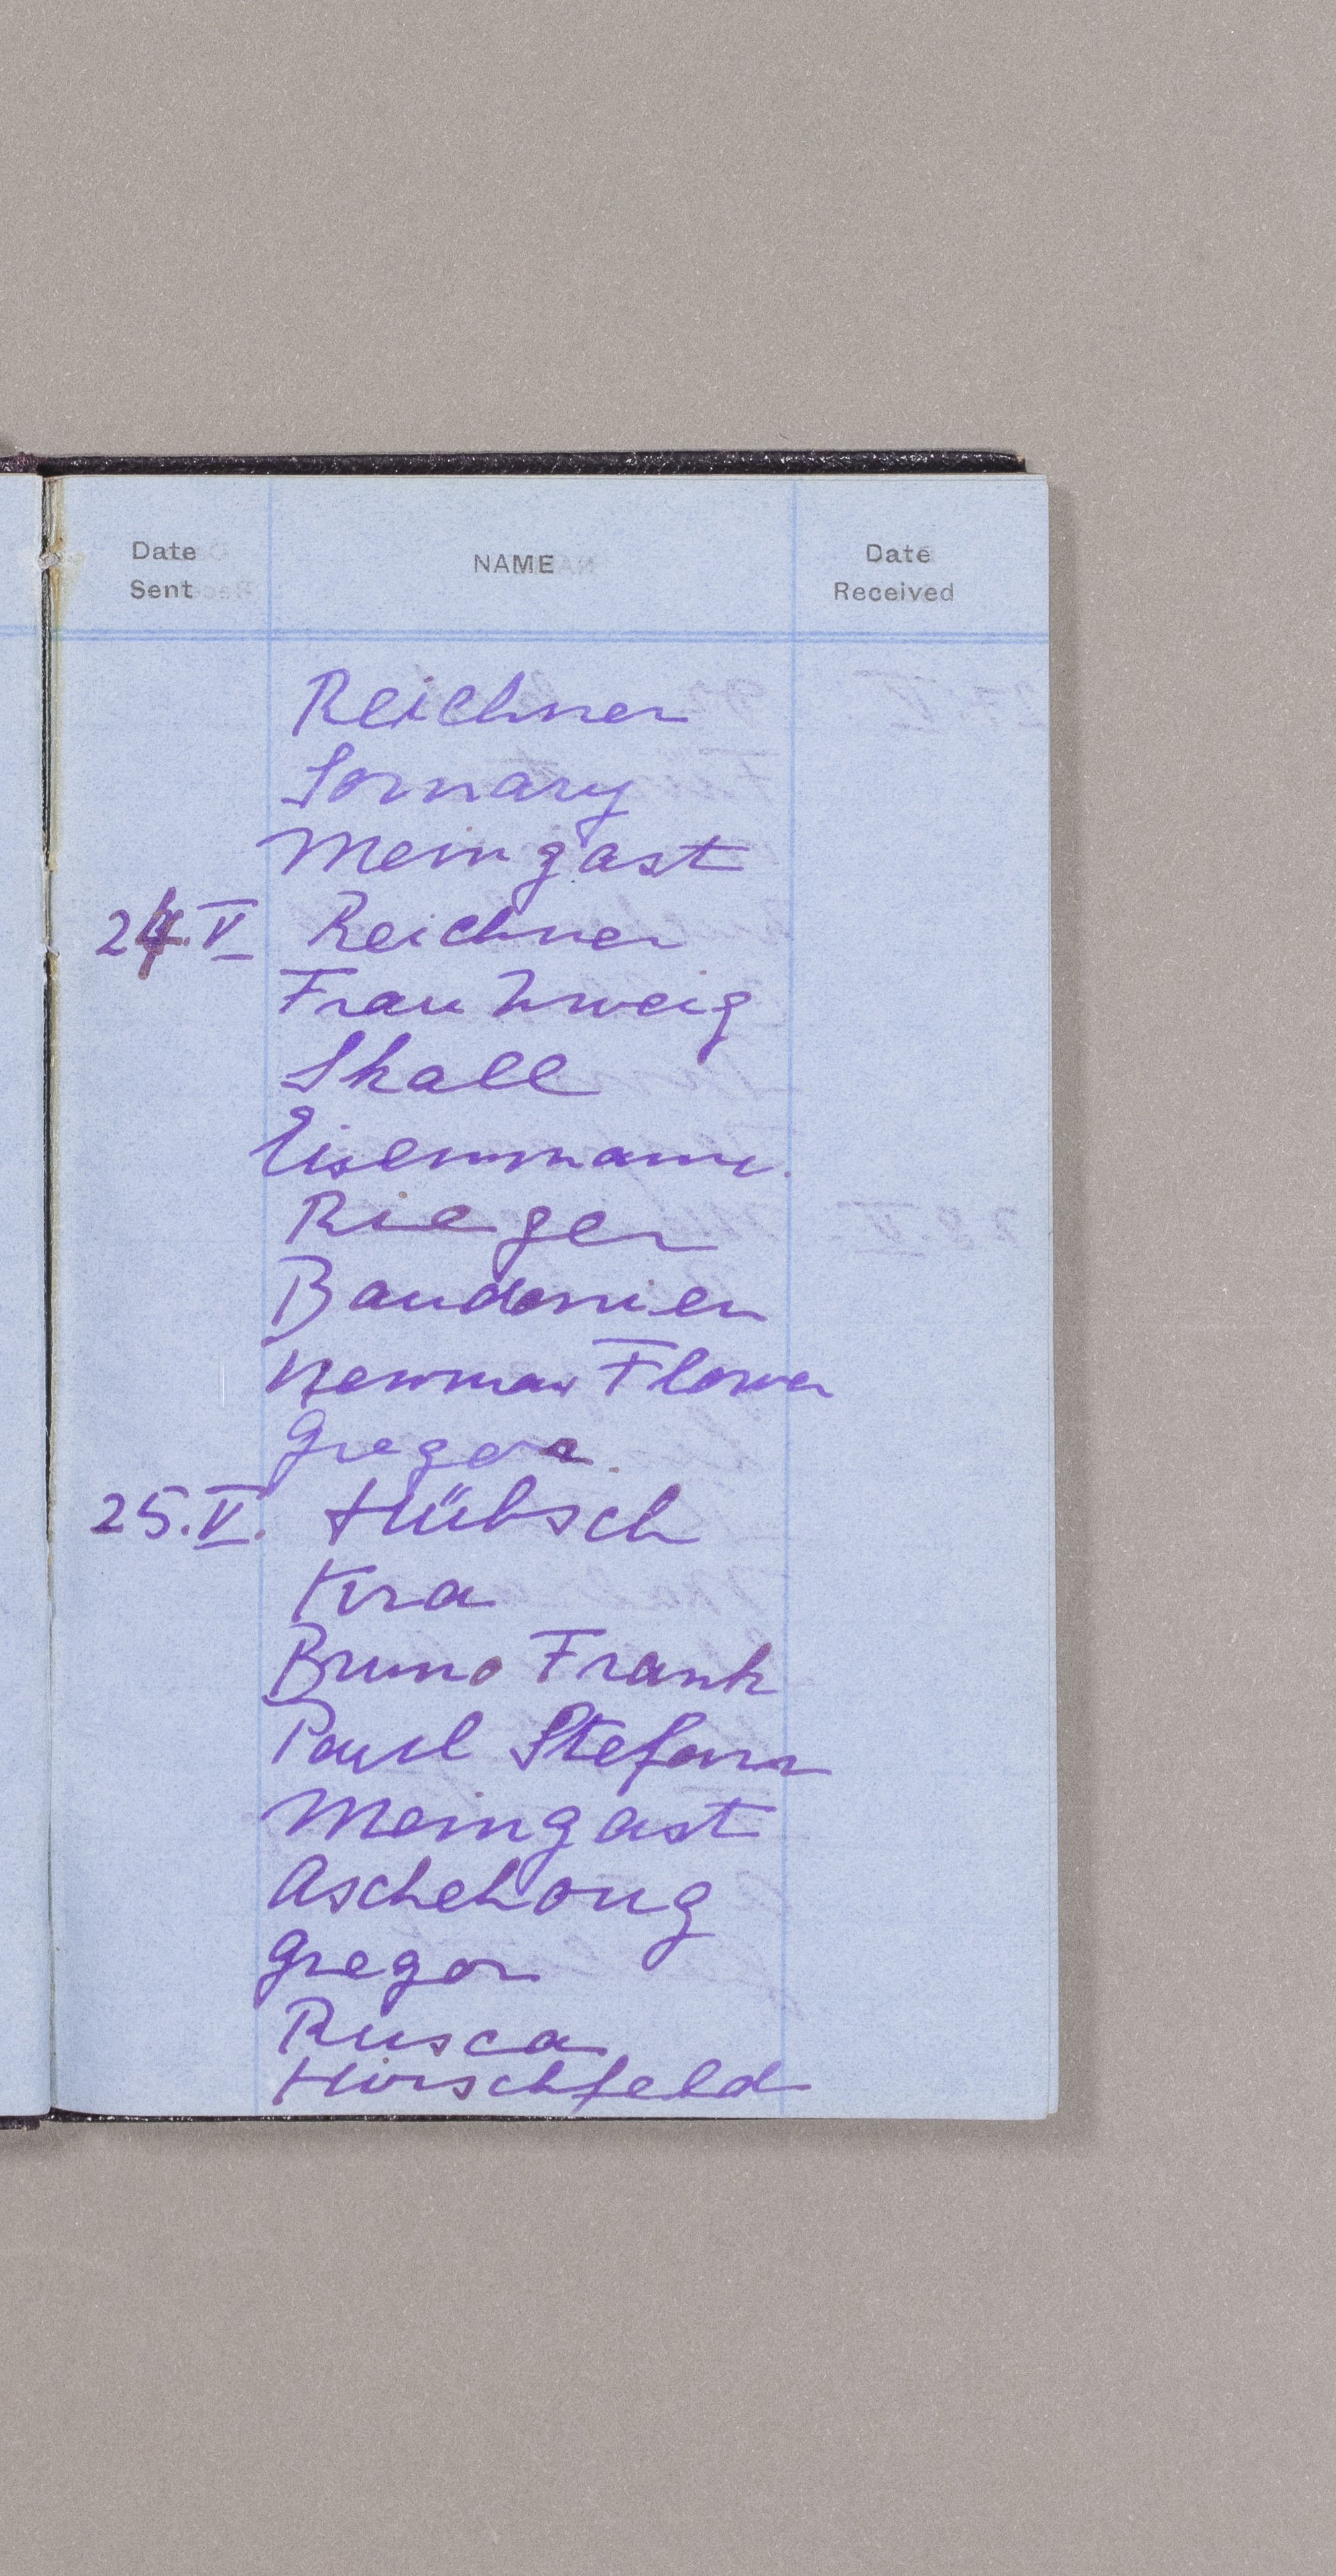 Date Sent NAME Date Received
Reichner
Somary
Meingast
24.V Reichner
Frau Zweig
Skall
Eisemmann.
Rieger
Baudonier
Newman Flower
Gregor
25.V. Hübsch
Kra
Bruno Frank
Paul Stefan
Meingast
Aschehoug
Gregor
Rusca
Hirschfeld